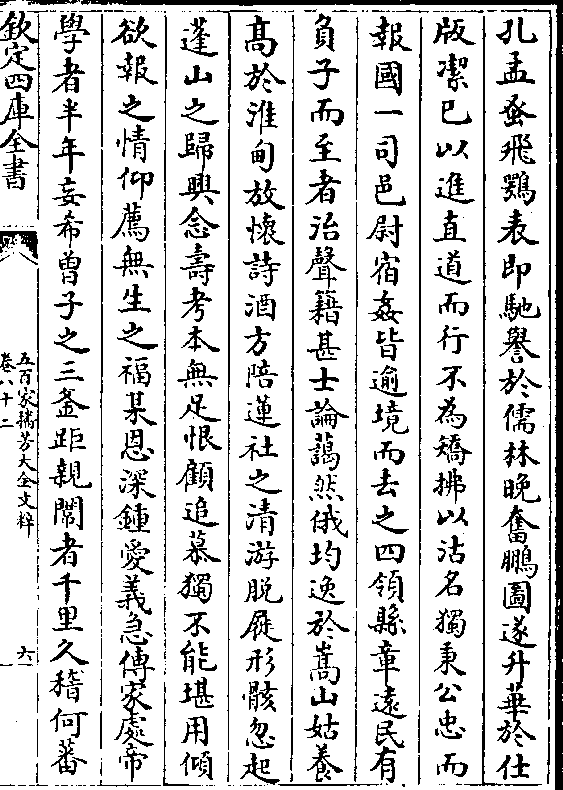 孔孟蚤飛鶚表即馳譽於儒林晚奮鵬圖遂升華於仕
版潔已以進直道而行不為矯拂以沽名獨秉公忠而
報國一司邑尉宿姦皆逾境而去之四領縣章遠民有
負子而至者治聲籍甚士論藹然俄均逸於嵩山姑養
髙於淮甸放懐詩酒方陪蓮社之清游脱屣形骸忽起
蓬山之歸興念壽考本無足恨顧追慕獨不能堪用傾
欲報之情仰薦無生之福某恩深鍾愛義急傳家處帝
學者半年妄希曽子之三釜距親闈者千里久稽何蕃
欽定四庫全書
五百家播芳大全文粹
卷八十二
六